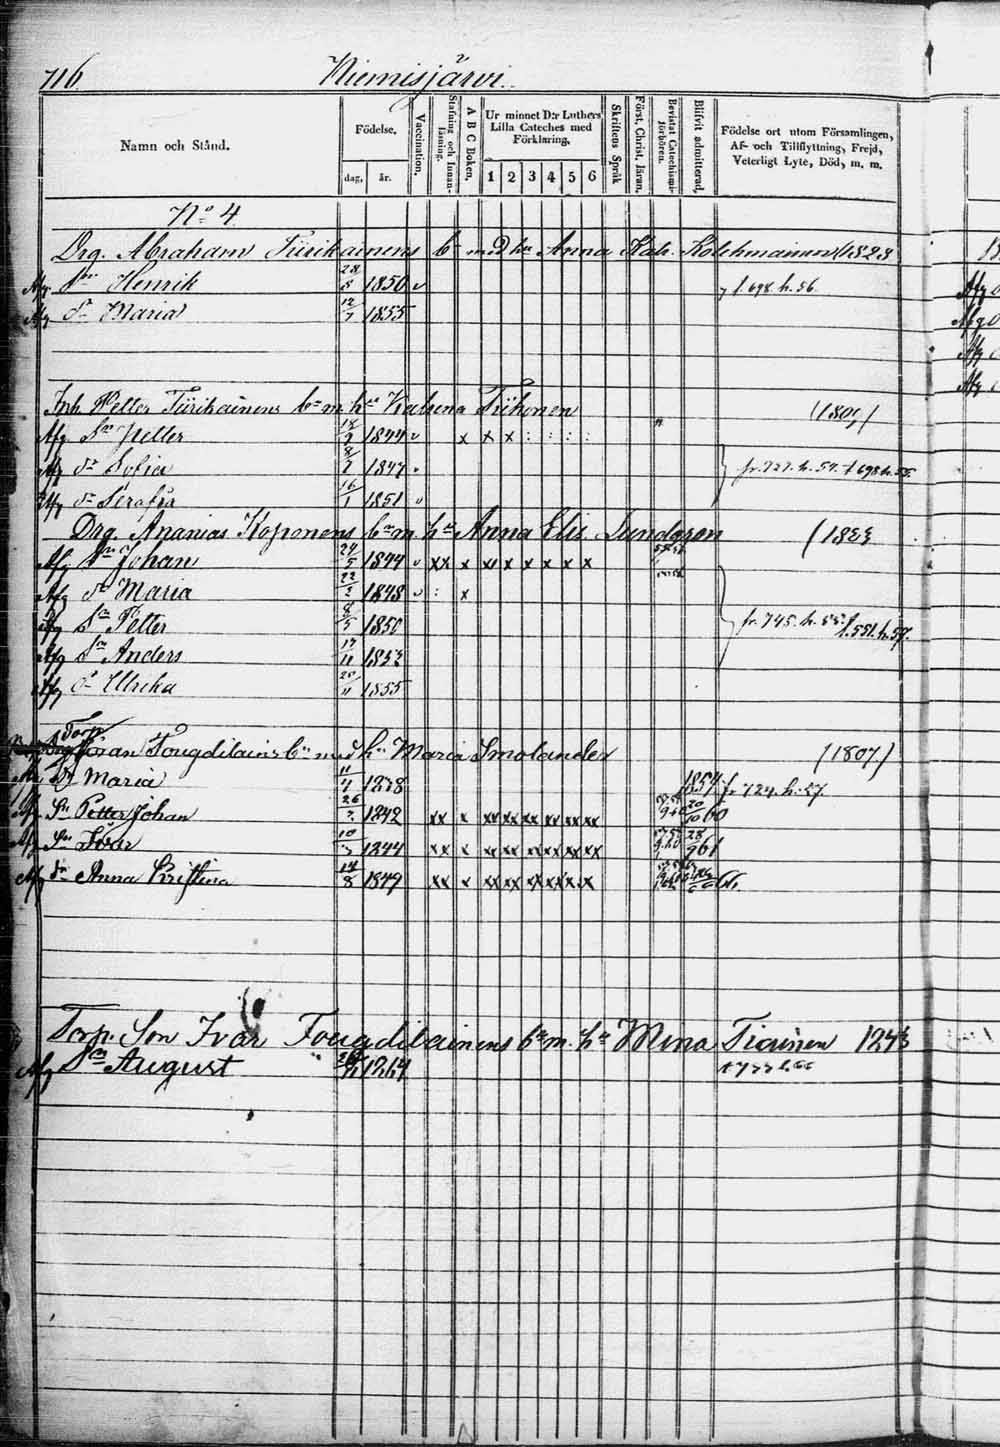 716. Niemisjärvi.
Namn och Stånd. Födelse. dag, år. Vaccination. Stafning och Innanläsning. A B C Boken. Ur minnet D:r Luthers Lilla Cateches med Förklaring. 1 2 3 4 5 6 Skriftens Språk Först. Christ. läran. Bevistat Catechismiförhören. Blifvit admitterad. Födelse ort utom Församlingen, Af- och Tillflyttning, Frejd, Veterligt Lyte, Död, m. m.
No 4
Drg. Abraham Tiirikainens bn med hu Anna Katr. Kolehmainen 1823
Afg Sn Henrik 28/8 1850 v 1.698 h. 56.
Afg dr Maria 12/7 1855
Inh. Petter Tiirikainens bn m. hu Katrina Tiihonen (1801)
Afg Sn Petter 18/2 1844 v x x x : : : :
Afg dr Sofia 8/2 1847 fr. 727. h. 54. t 698 h. 55.
Afg dr Serafia 16/1 1851 v
Drg. Ananias Koponens bn m. hu Anna Elis. Lundgren (1823
Afg Sn Johan 24/5 1844 v xx x xx x x x x x
Afg dr Maria 22/2 1848 v : x
Afg Sn Petter 8/5 1850 fr. 745. h. 55. 1.551. h. 57.
Afg Sn Anders 17/11 1852
Afg dr Ulrika 20/11 1855
Torp.
Göran Fougdilains bn med hu Maria Smolander (1807)
Dr Maria 11/7 1838 1854 fr 724. h. 57.
Afg Sn Petter Johan 26/2 1842 xx x xx xx xx xx xx xx 20/10 60
Afg Sn Ivar 10/3 1844 xx x xx xx xx xx xx xx 28/9 61
Afg dr Anna Kristina 14/8 1849 xx x xx xx xx xx x x 66.
Torp. Son Ivar Fougdilainens bn m. hu Mina Tiainen 1843
Afg Sn August 1864